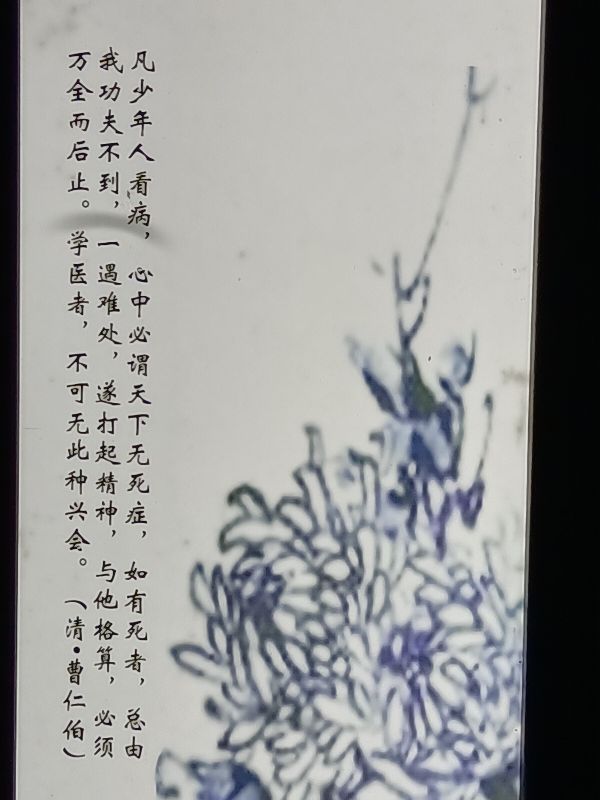 凡少年人看病，心中必谓天下无死症，如有死者，总由
我功夫不到，一遇难处，遂打起精神，与他格算，必须
万全而后止。学医者，不可无此种兴会。（清·曹仁伯）